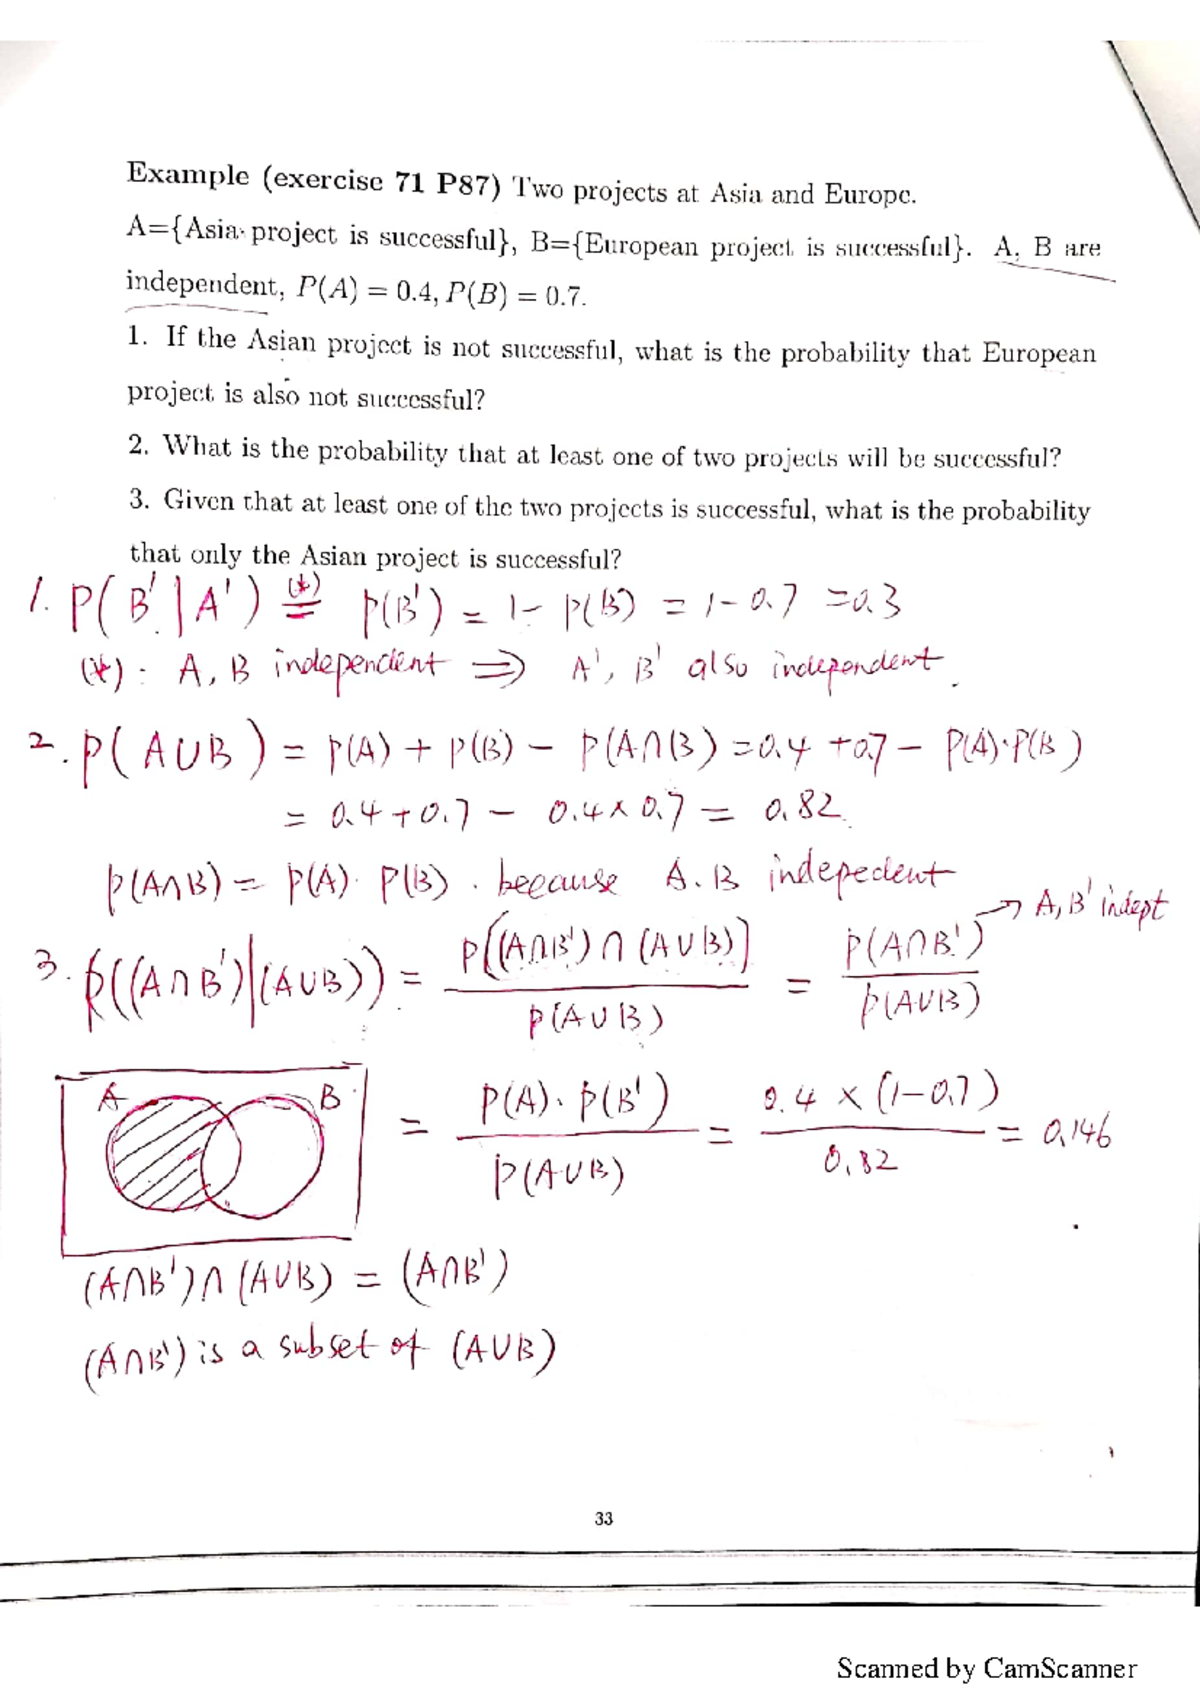 Example (exercise 71 P87) Two projects at Asia and Europe.
A={Asia project is successful}, B={European project is successful}. A, B are
independent, P(A) = 0.4, P(B) = 0.7.
1. If the Asian project is not successful, what is the probability that European
project is also not successful?
2. What is the probability that at least one of two projects will be successful?
3. Given that at least one of the two projects is successful, what is the probability
that only the Asian project is successful?
1. P(B'|A') (*)= P(B') = 1- P(B) = 1-0.7 =0.3
(*): A, B independent ⇒ A', B' also independent.
2. P(A∪B) = P(A) + P(B) - P(A∩B) = 0.4 +0.7 - P(A)·P(B)
= 0.4+0.7 - 0.4×0.7 = 0.82.
P(A∩B) = P(A)·P(B). because A.B indepedent
→ A, B' indept
3. P((A∩B')|(A∪B)) = P[(A∩B')∩(A∪B)] / P(A∪B) = P(A∩B') / P(A∪B)
A B
= P(A)·P(B') / P(A∪B) = 0.4 × (1-0.7) / 0.82 = 0.146
(A∩B')∩(A∪B) = (A∩B')
(A∩B') is a subset of (A∪B)
33
Scanned by CamScanner